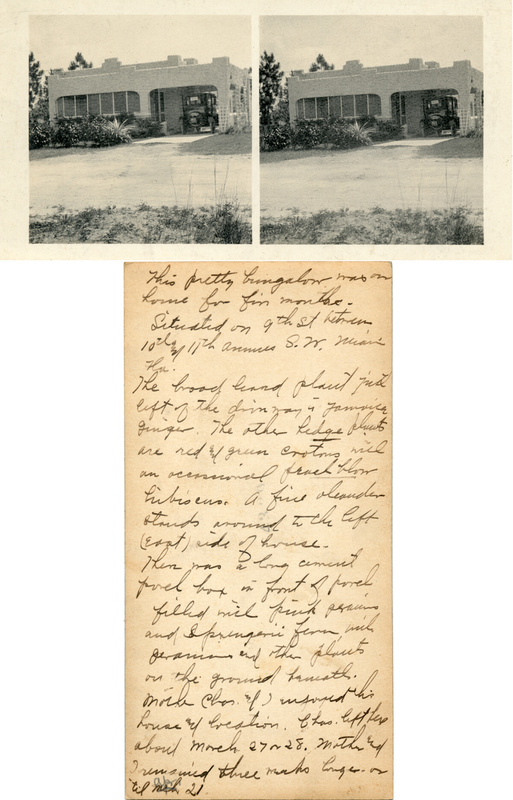 This pretty bungalow was our
home for five months.
Situated on 9th St between
10th & 11th avenues S.W. Miami
Fla.
The broad leaved plant just
left of the driveway is Jamaica
ginger. The other hedge plants
are red & green crotons with
an occasional peach blow
hibiscus. A fine oleander
stands around to the left
(east) side of house.
There was a long cement
porch box in front of porch
filled with pink
and Sprengerii fern, with
geraniums and other plants
on the ground beneath.
Mother Chas. & I enjoyed this
house & location. Chas. left here
about March 27 or 28. Mother and
I remained three weeks longer or
til 21